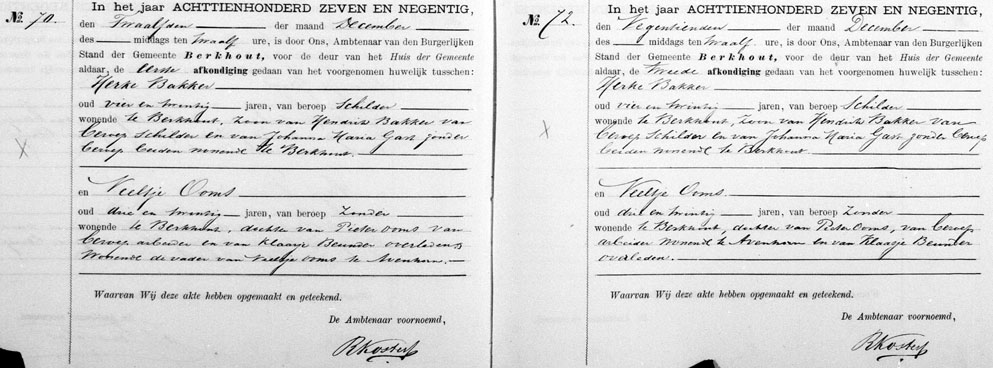 No. 70.
In het jaar ACHTTIENHONDERD ZEVEN EN NEGENTIG,
den Twaalfden der maand December
des middags ten twaalf ure, is door Ons, Ambtenaar van den Burgerlijken
Stand der Gemeente Berkhout, voor de deur van het Huis der Gemeente
aldaar, de eerste afkondiging gedaan van het voorgenomen huwelijk tusschen:
Herke Bakker
oud vier en twintig jaren, van beroep Schilder
wonende te Berkhout, Zoon van Hendrik Bakker van
beroep Schilder en van Johanna Maria Gast zonder
beroep beiden wonende te Berkhout.
en Neeltje Ooms
oud drie en twintig jaren, van beroep Zonder
wonende te Berkhout, dochter van Pieter Ooms van
beroep arbeider en van Klaasje Beunder overleden,
Wonende de vader van Neeltje Ooms te Avenhorn.
Waarvan Wij deze akte hebben opgemaakt en geteekend.
De Ambtenaar voornoemd,
RKoster
No. 72.
In het jaar ACHTTIENHONDERD ZEVEN EN NEGENTIG,
den Negentienden der maand December
des middags ten twaalf ure, is door Ons, Ambtenaar van den Burgerlijken
Stand der Gemeente Berkhout, voor de deur van het Huis der Gemeente
aldaar, de tweede afkondiging gedaan van het voorgenomen huwelijk tusschen:
Herke Bakker
oud vier en twintig jaren, van beroep Schilder
wonende te Berkhout, Zoon van Hendrik Bakker van
beroep Schilder en van Johanna Maria Gast zonder beroep
beiden wonende te Berkhout.
en Neeltje Ooms
oud drie en twintig jaren, van beroep Zonder
wonende te Berkhout, dochter van Pieter Ooms, van beroep
arbeider wonende te Avenhorn en van Klaasje Beunder
overleden.
Waarvan Wij deze akte hebben opgemaakt en geteekend.
De Ambtenaar voornoemd,
RKoster